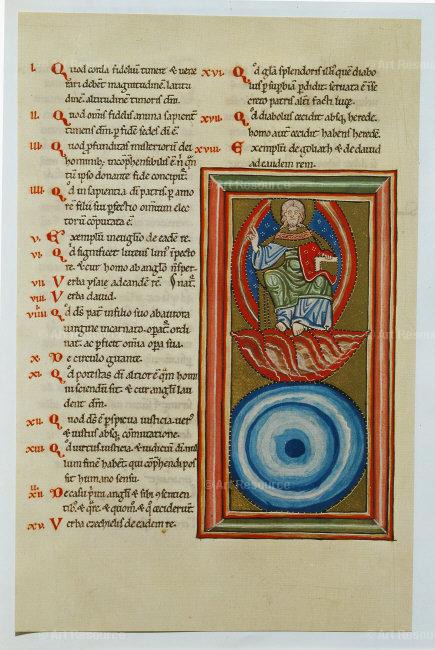 i. Quod corda fidelium timere & vene
rari debent magnitudinem latitu
dinē altitudinē timoris dm̄.
ii. Quod omnis fidelis anima sapienter
timens dm̄. p fidē sedes di ē.
iii. Quod pfunditas misteriorū dei
hominibus incōphensibilis ē n̄ qn̄
tū ipso donante fide concipit.
iiii. Qd in sapientia di patris. p amo
rē filii sui pfectio omnium elec
torū cōputata ē.
v. Exemplū in euglio de eadē re.
vi. Qd significet luteus limus in pecto
re. & cur homo ab anglo n̄ sper
nat.
vii. Verba ysaie ad eandē rē.
viii. Verba david.
viiii. Qd ds pat in filio suo ab aurora
virgine incarnato. opat. ordi
nat. ac pficit omnia opa sua.
x. De circulo girante.
xi. Qd potestas di altior ē qm̄ homi
ni sciendū sit & cur angli lau
dent dm̄.
xii. Quod ds ē pspicua iusticia. verus
& iustus absq commutatione.
xiii. Qd virtus. iusticia. & iudiciū di. nul
lum finē habet. qui cōphendi pos
sit humano sensu.
xiiii. De casu primi angli & sibi csentien
tibus. & qre. & quom. & q ceciderunt.
xv. Verba ezechielis de eadem re.
xvi. Qd gla splendoris illius. quē diabo
lus p supbiā pdidit. servata ē i se
creto patris alteri factȩ luce.
xvii. Qd diabolus cecidit absq herede.
homo aut cecidit habens heredē.
xviii. Exemplū de goliath & de david
ad eandem rem.
© Art Resource
© Art Resource
© Art Resource
© Art Resource